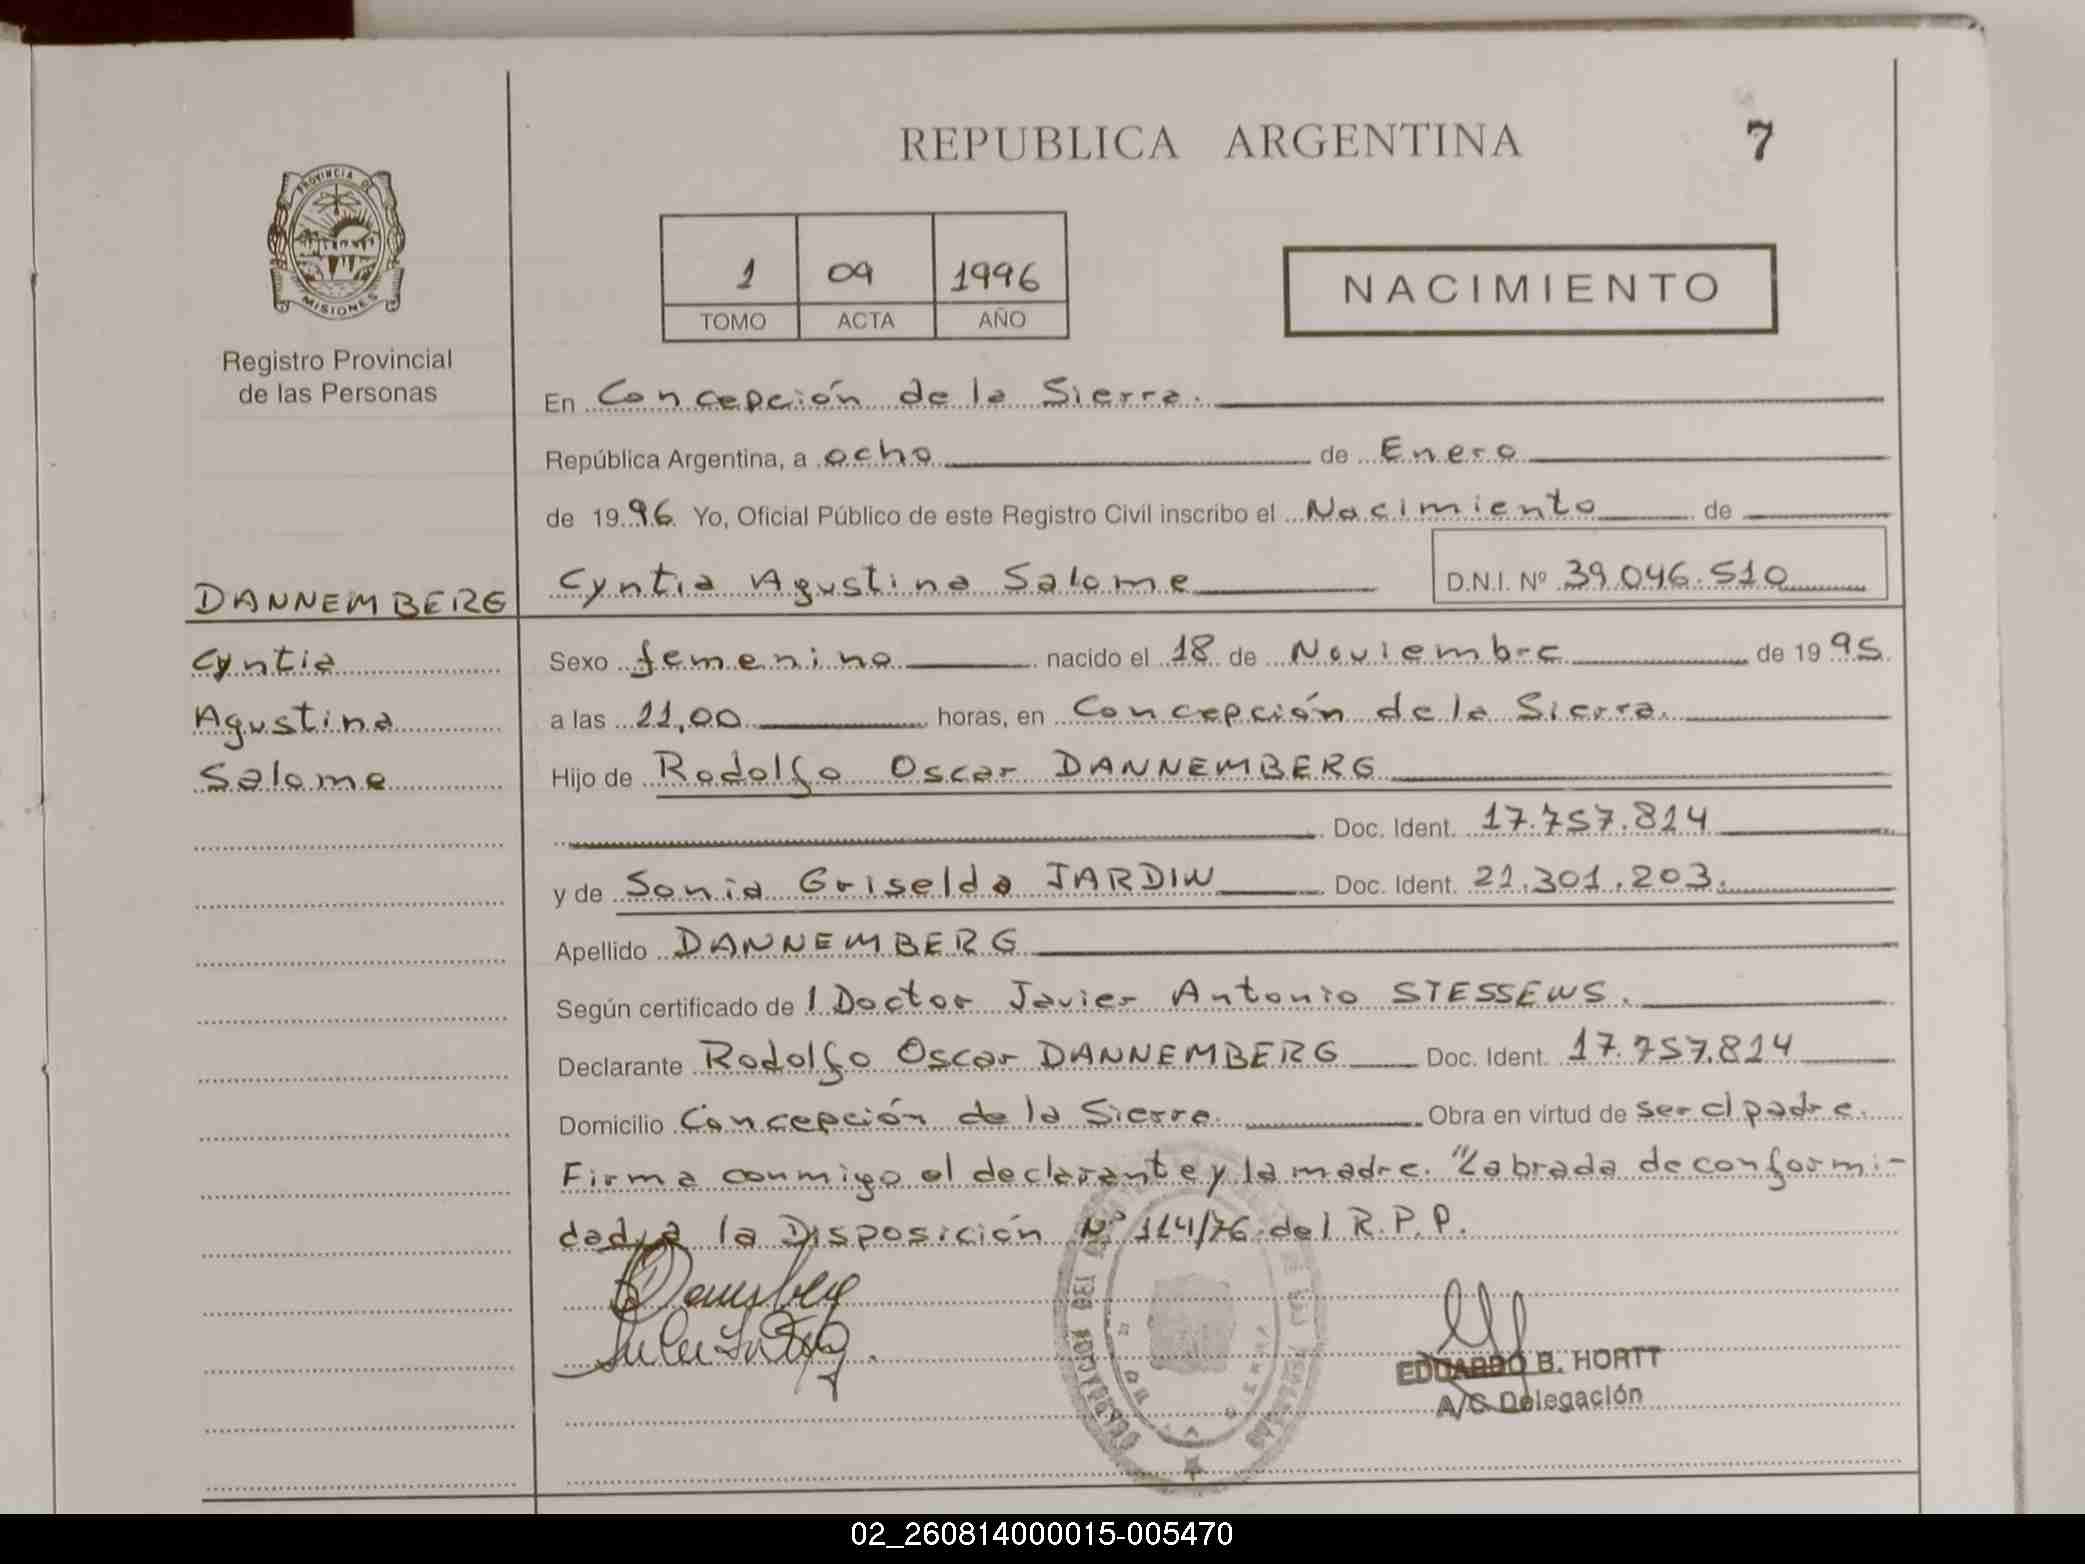 REPUBLICA ARGENTINA
7
PROVINCIA DE
MISIONES
Registro Provincial
de las Personas
1 09 1996
TOMO ACTA AÑO
NACIMIENTO
En Concepción de la Sierra.
República Argentina, a ocho de Enero
de 1996 Yo, Oficial Público de este Registro Civil inscribo el Nacimiento de
Cyntia Agustina Salome D.N.I. Nº 39.046.510
DANNEMBERG
Cyntia
Agustina
Salome
Sexo femenino nacido el 18 de Noviembre de 1995
a las 11,00 horas, en Concepción de la Sierra.
Hijo de Rodolfo Oscar DANNEMBERG
Doc. Ident. 17.757.814
y de Sonia Griselda JARDIN Doc. Ident. 21.301.203.
Apellido DANNEMBERG
Según certificado de l Doctor Javier Antonio STESSEWS.
Declarante Rodolfo Oscar DANNEMBERG Doc. Ident. 17.757.814
Domicilio Concepción de la Sierra. Obra en virtud de ser el padre.
Firma conmigo el declarante y la madre. "Labrada de conformi-
dad, a la Disposición Nº 114/76 del R.P.P.
EDUARDO B. HORTT
A/C Delegación
02_260814000015-005470